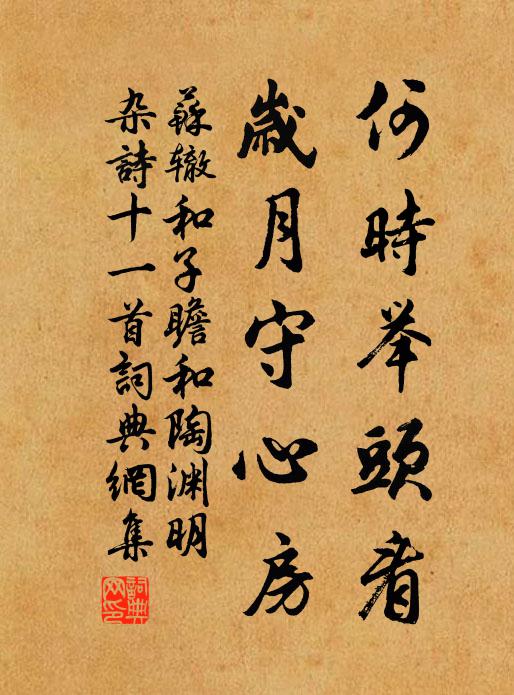 何時举頭看
歲月守心房
蘇辙和子瞻和陶渊明
杂詩十一首詞典網集
詞典網印